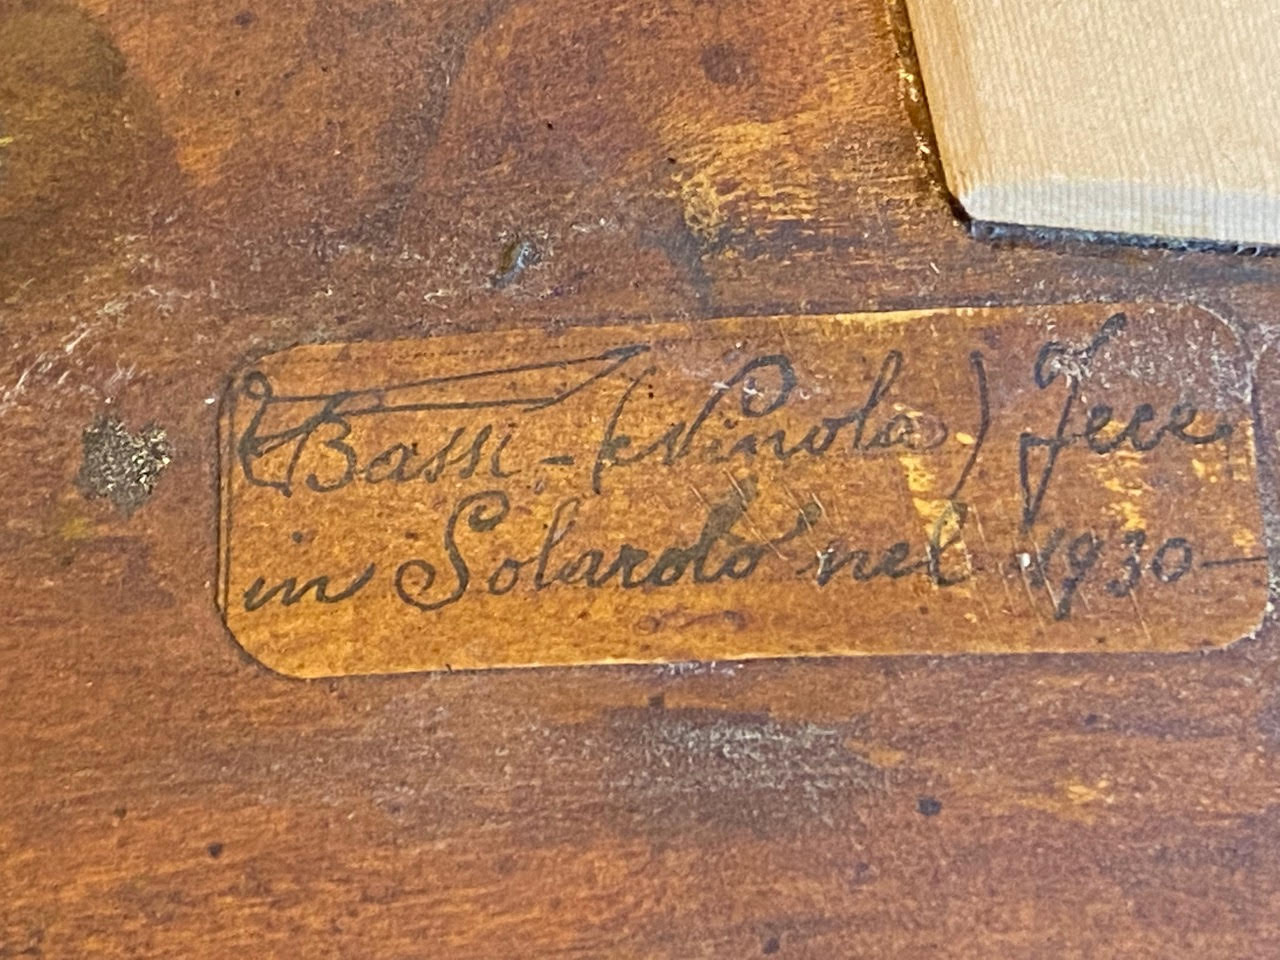 Bassi - (Ninola) Fece,
in Solarolo nel 1930 —